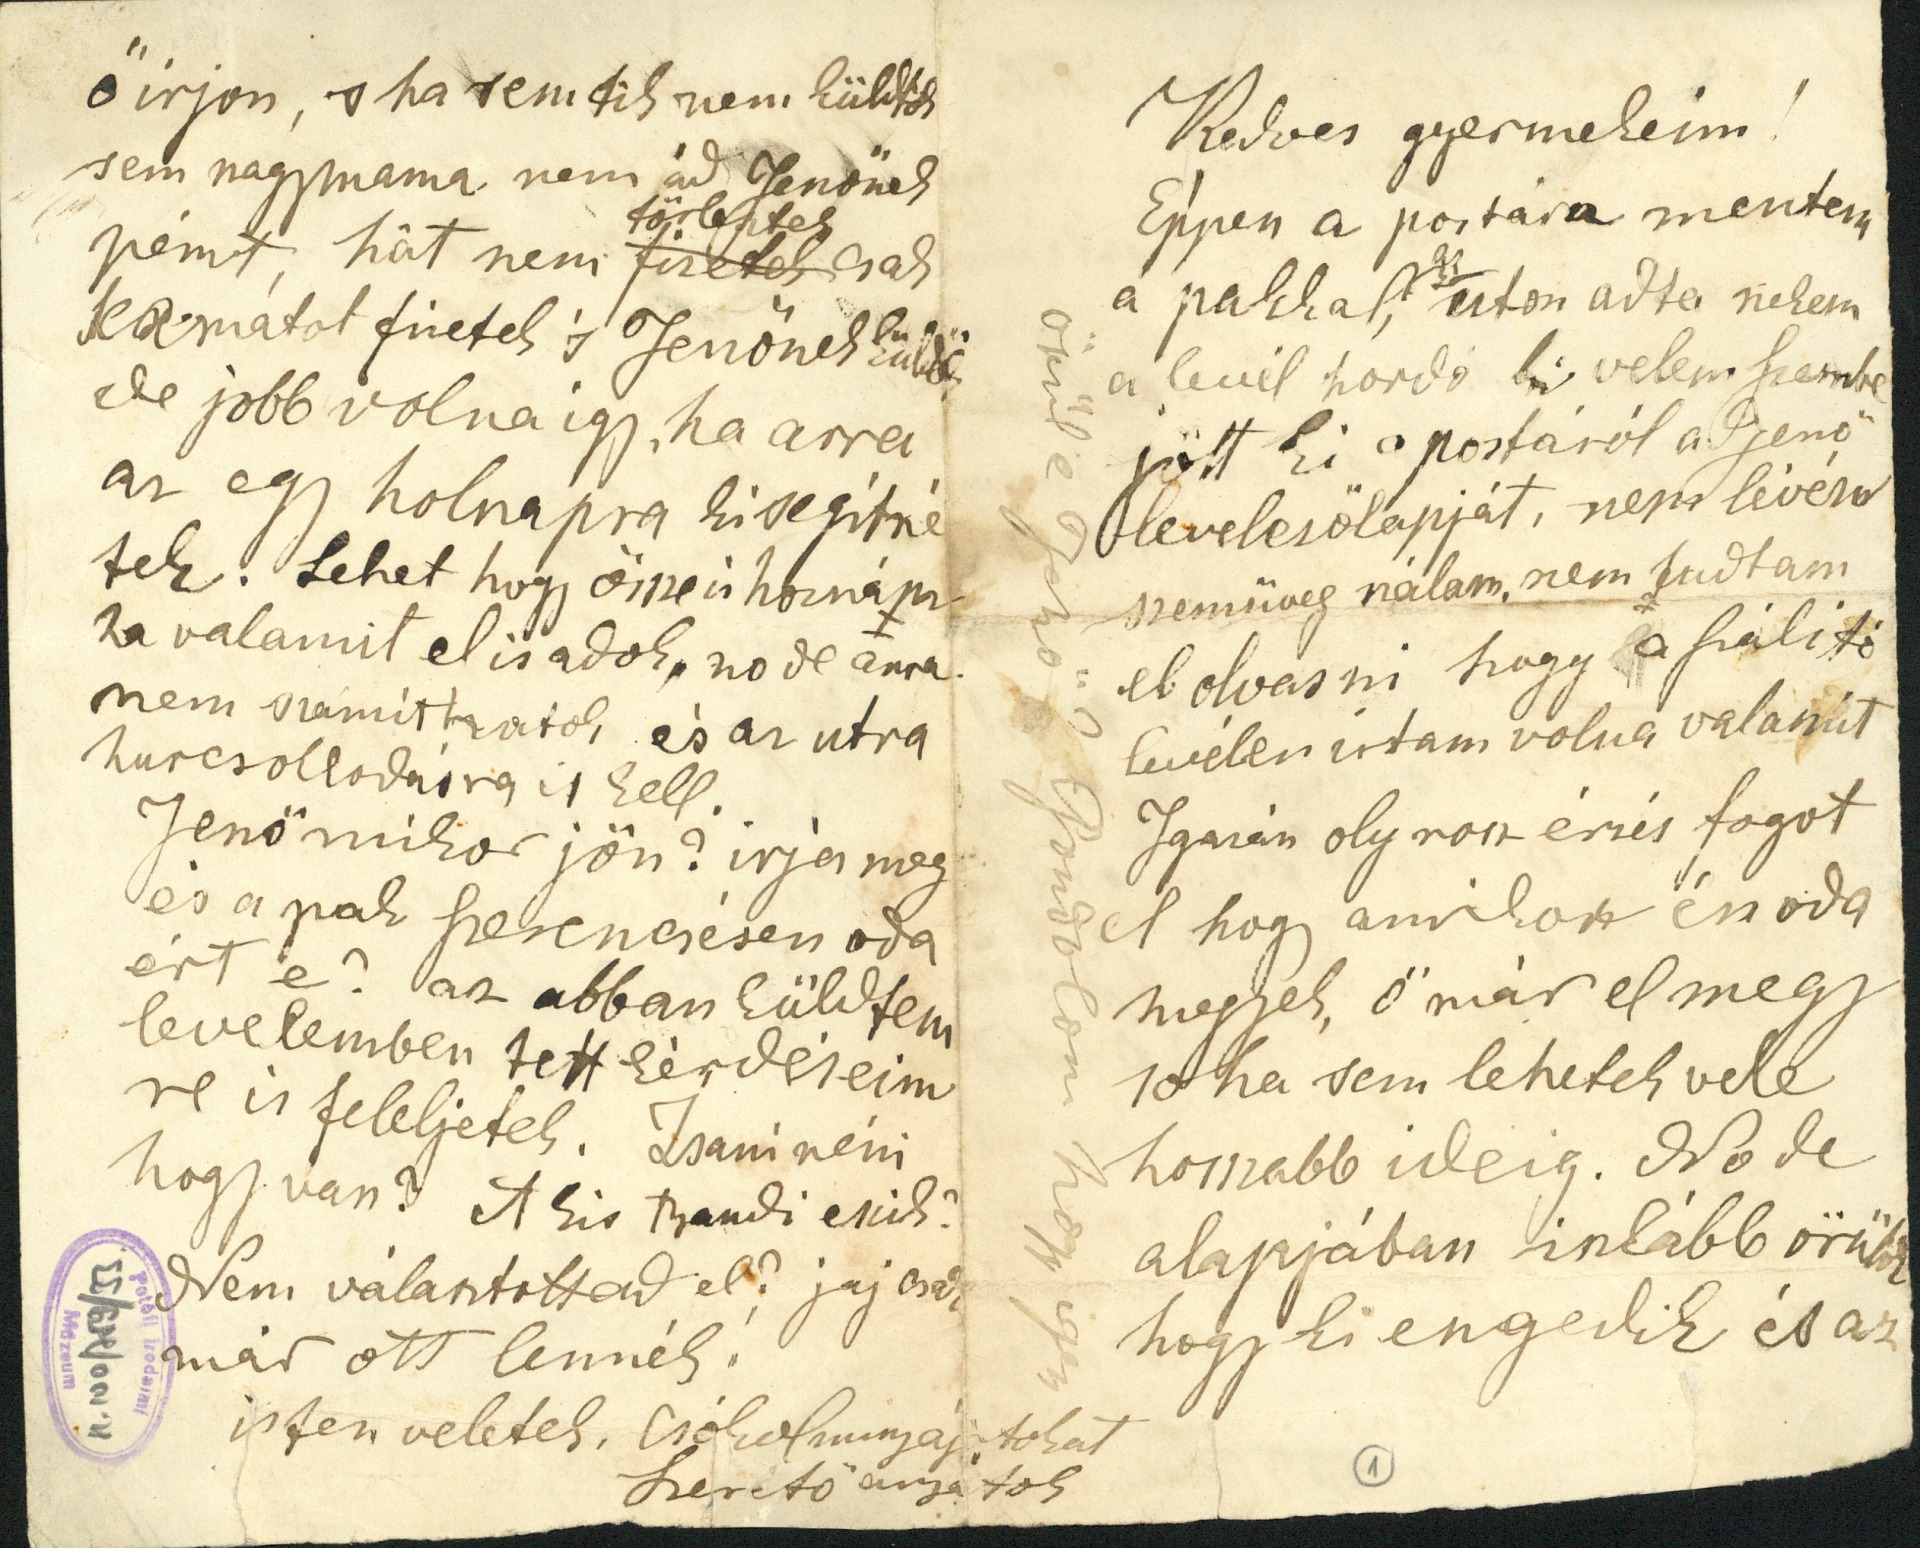 Kedves gyermekeim!
Éppen a postára mentem
a pakkal, az uton adta nekem
a levél hordó ki velem szembe
jött ki a postáról a Jenő
levelezőlapját, nem lévén
szemüveg nálam, nem tudtam
el olvasni hogy a szálitó
levélen irtam volna valamit
Igazán oly rosz érzés fogot
el hogy amikor én oda
megyek, ő már el megy
soha sem lehetek vele
hosszabb ideig. No de
alapjában inkább örülök
hogy ki engedik és az
örül e Jenő? Gondolom hogy igen
ő irjon, s ha sem tik nem küldtök
sem nagymama nem ád Jenőnek
pénzt, hát nem fizetek törlesztek csak
kamatot fizetek 's Jenőnek küldök
de jobb volna igy, ha arra
az egy holnapra kisegítné
tek. Lehet hogy össze is
ha valamit el is adok, no de arra
nem számithatok és az utra
hurczolkodásra is kell.
Jenő mikor jön? irja meg
és a pak szerencsésen oda
ért e? az abban küldtem
levelemben tett kérdéseim
re is feleljetek. Zsani néni
hogy van? A kis Bandi eszik?
Nem választottad el? jaj csak
már ott lennék!
isten veletek, Csókol mnyájatokat
Szerető anyátok
Petőfi Irodalmi
Múzeum
1